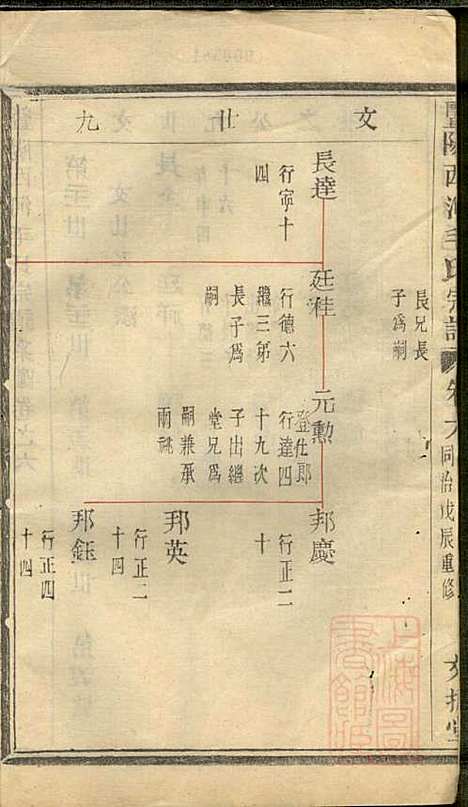 西河毛氏宗譜
同治戊辰重修
文廿九
長兄長
子爲嗣
長達
行寧十
四
廷溎
行德六
繼三弟
長子爲
嗣
元勲
登仕郎
行達四
十九次
子出繼
堂兄爲
嗣兼承
兩祧
邦慶
行正二
十
邦英
行正二
十四
邦鈺
行正四
十四
上海圖
書館藏